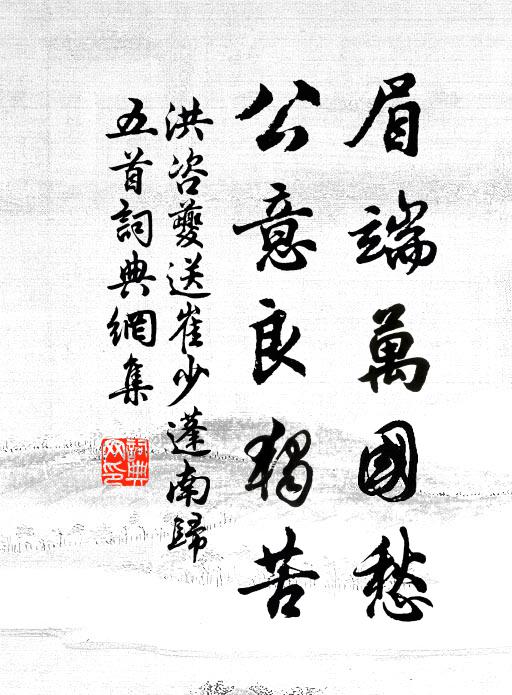 眉端萬國愁
公意良獨苦
洪咨夔送崔少蓬南歸
五首詞典網集
詞典
网印